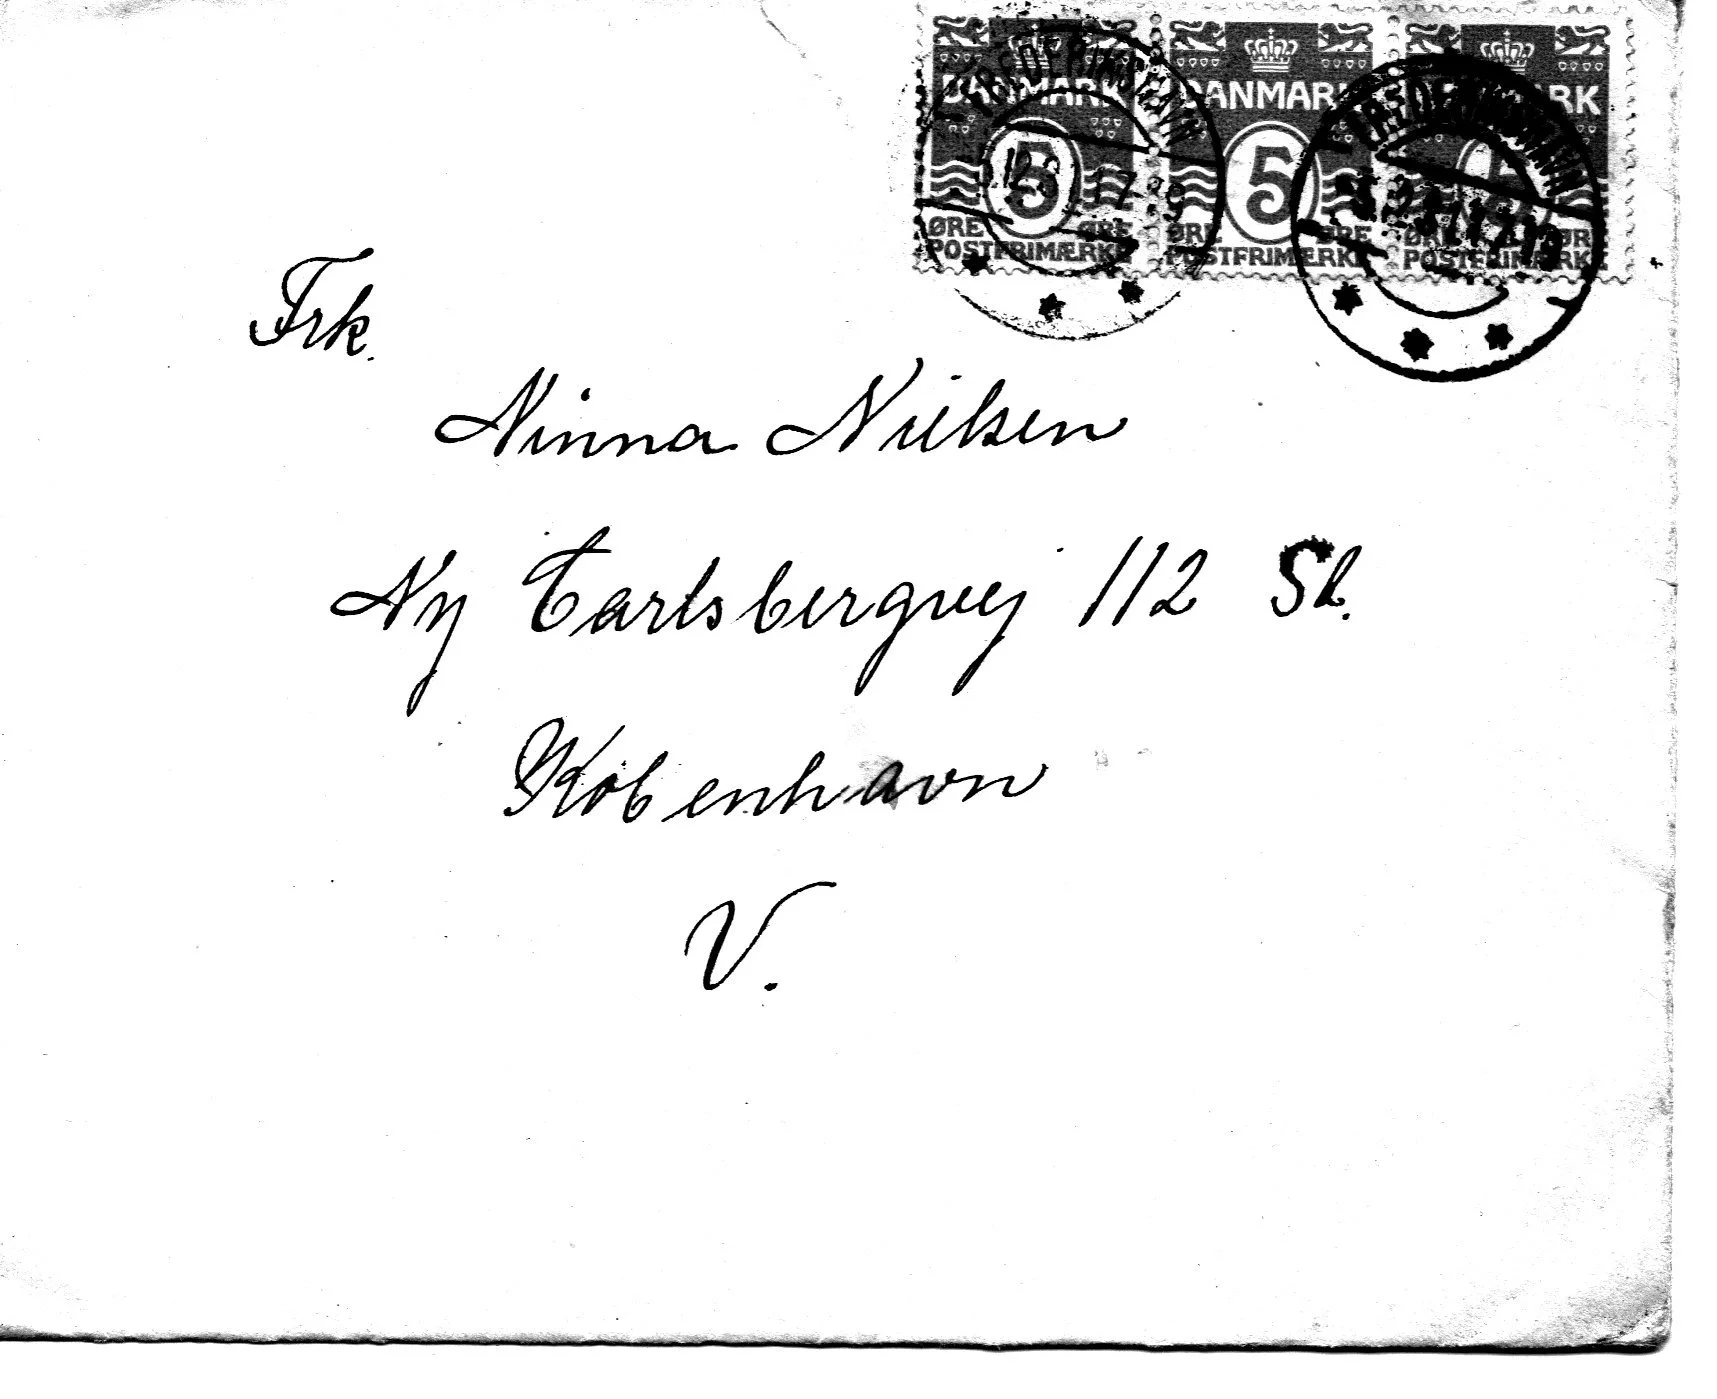 DANMARK DANMARK DANMARK
FREDERIKSHAVN FREDERIKSHAVN
5 5 5
ØRE ØRE ØRE ØRE ØRE ØRE
POSTFRIMÆRKE POSTFRIMÆRKE POSTFRIMÆRKE
Frk.
Ninna Nielsen
Ny Carlsbergvej 112 St.
København
V.